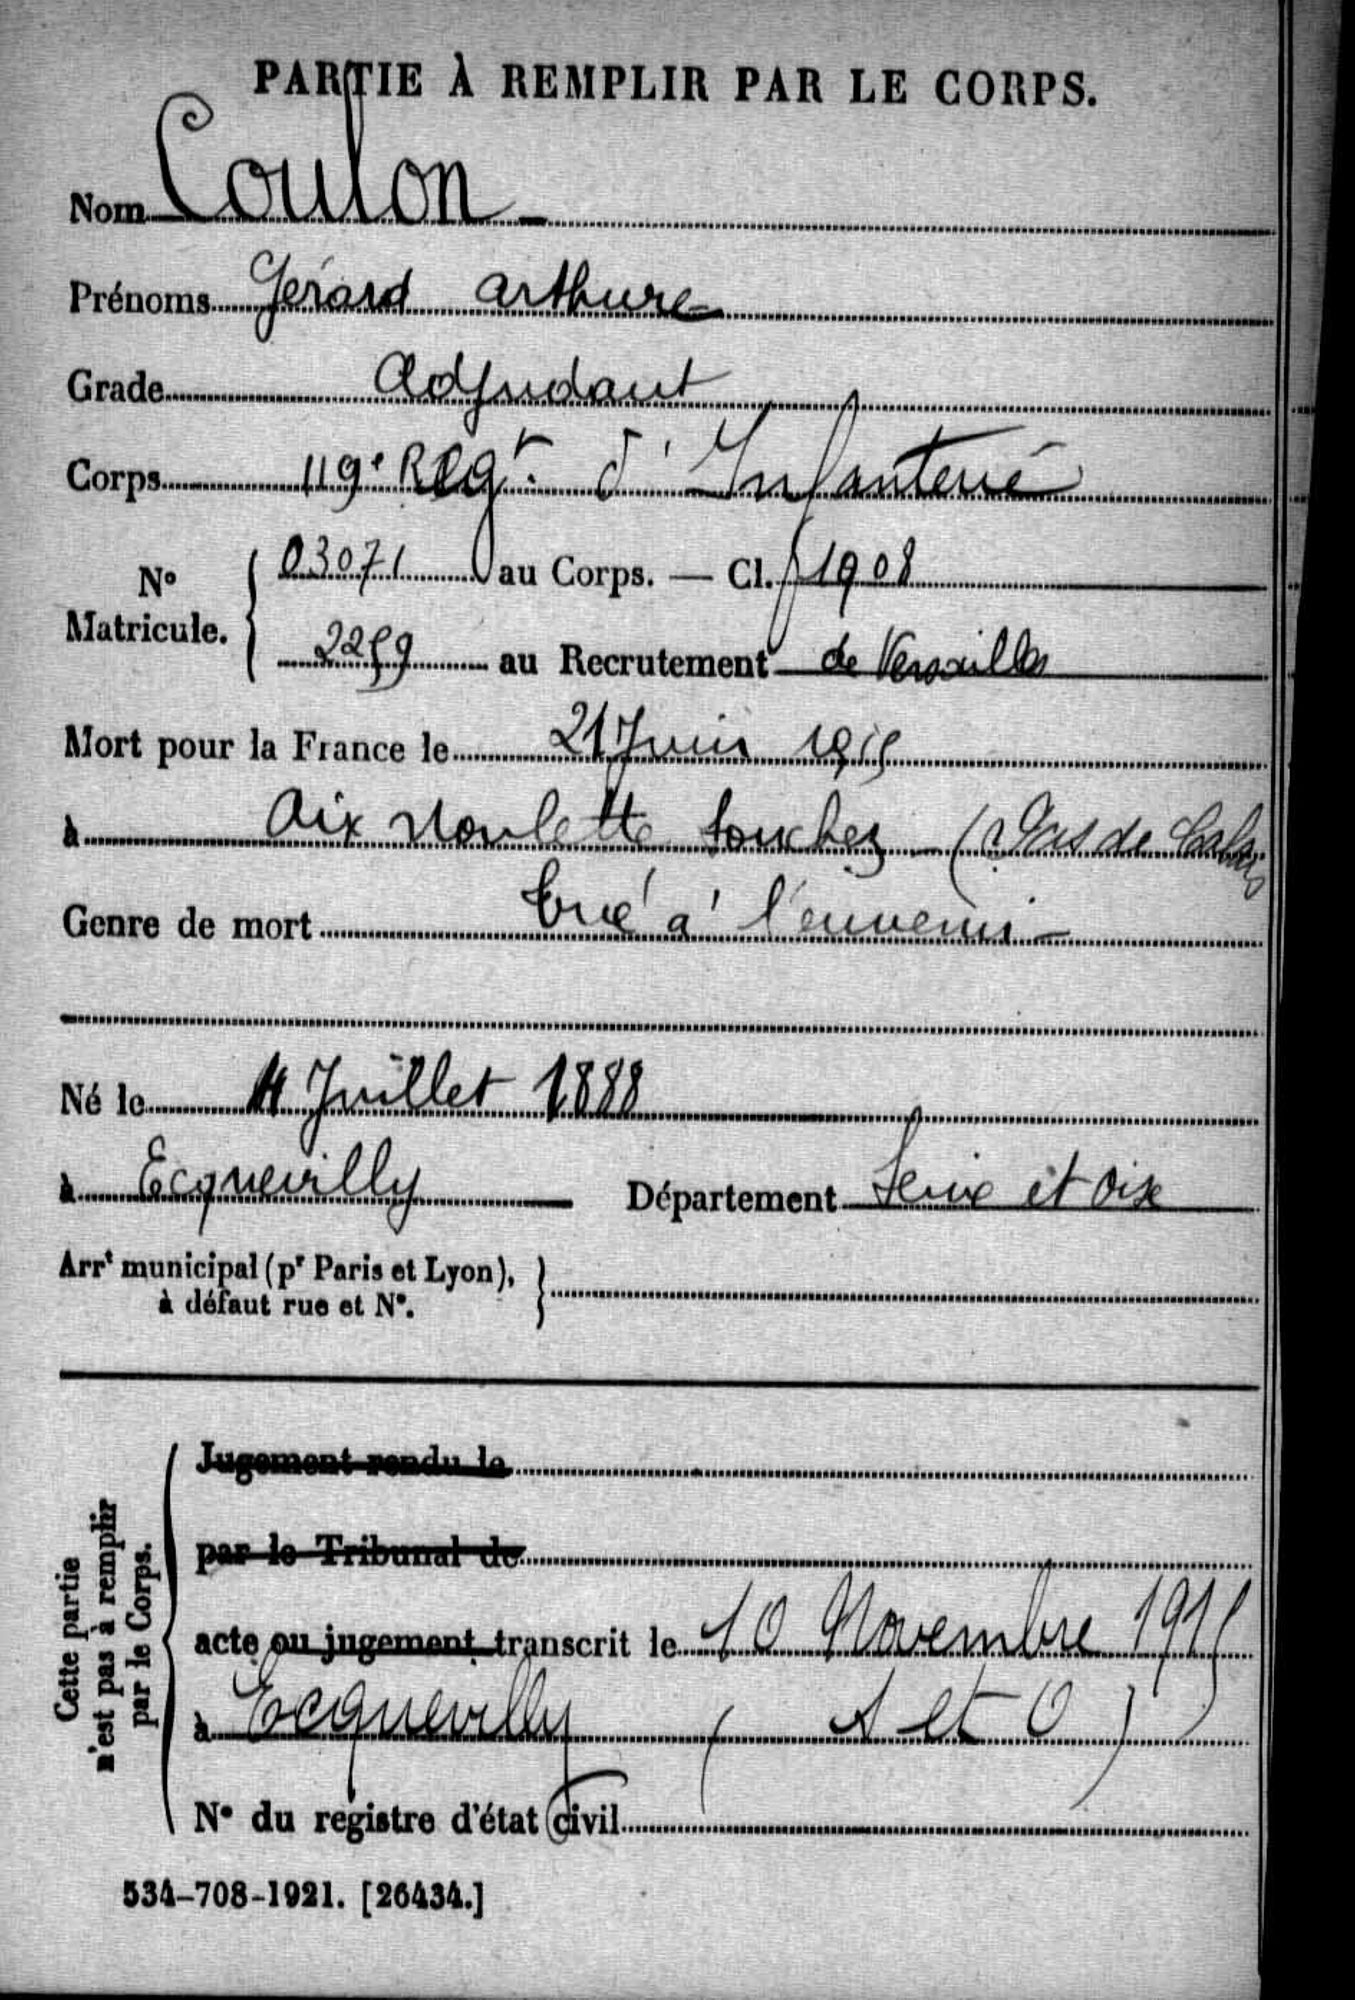 PARTIE À REMPLIR PAR LE CORPS.
Nom Coulon -
Prénoms Gérard Arthure
Grade Adjudant
Corps 119e Regt. d'Infanterie
N° Matricule. { 03071 au Corps. — Cl. 1908
2259 au Recrutement de Versailles
Mort pour la France le 21 Juin 1915
à Aix Noulette Souchez - (Pas de Calais
Genre de mort tué à l'ennemi -
Né le Juillet 1888
à Ecquevilly Département Seine et Oise
Arrt municipal (pr Paris et Lyon),
à défaut rue et N°.
Cette partie
n'est pas à remplir
par le Corps.
Jugement rendu le
par le Tribunal de
acte ou jugement transcrit le 10 Novembre 1915
à Ecquevilly (S et O)
N° du registre d'état civil
534-708-1921. [26434.]